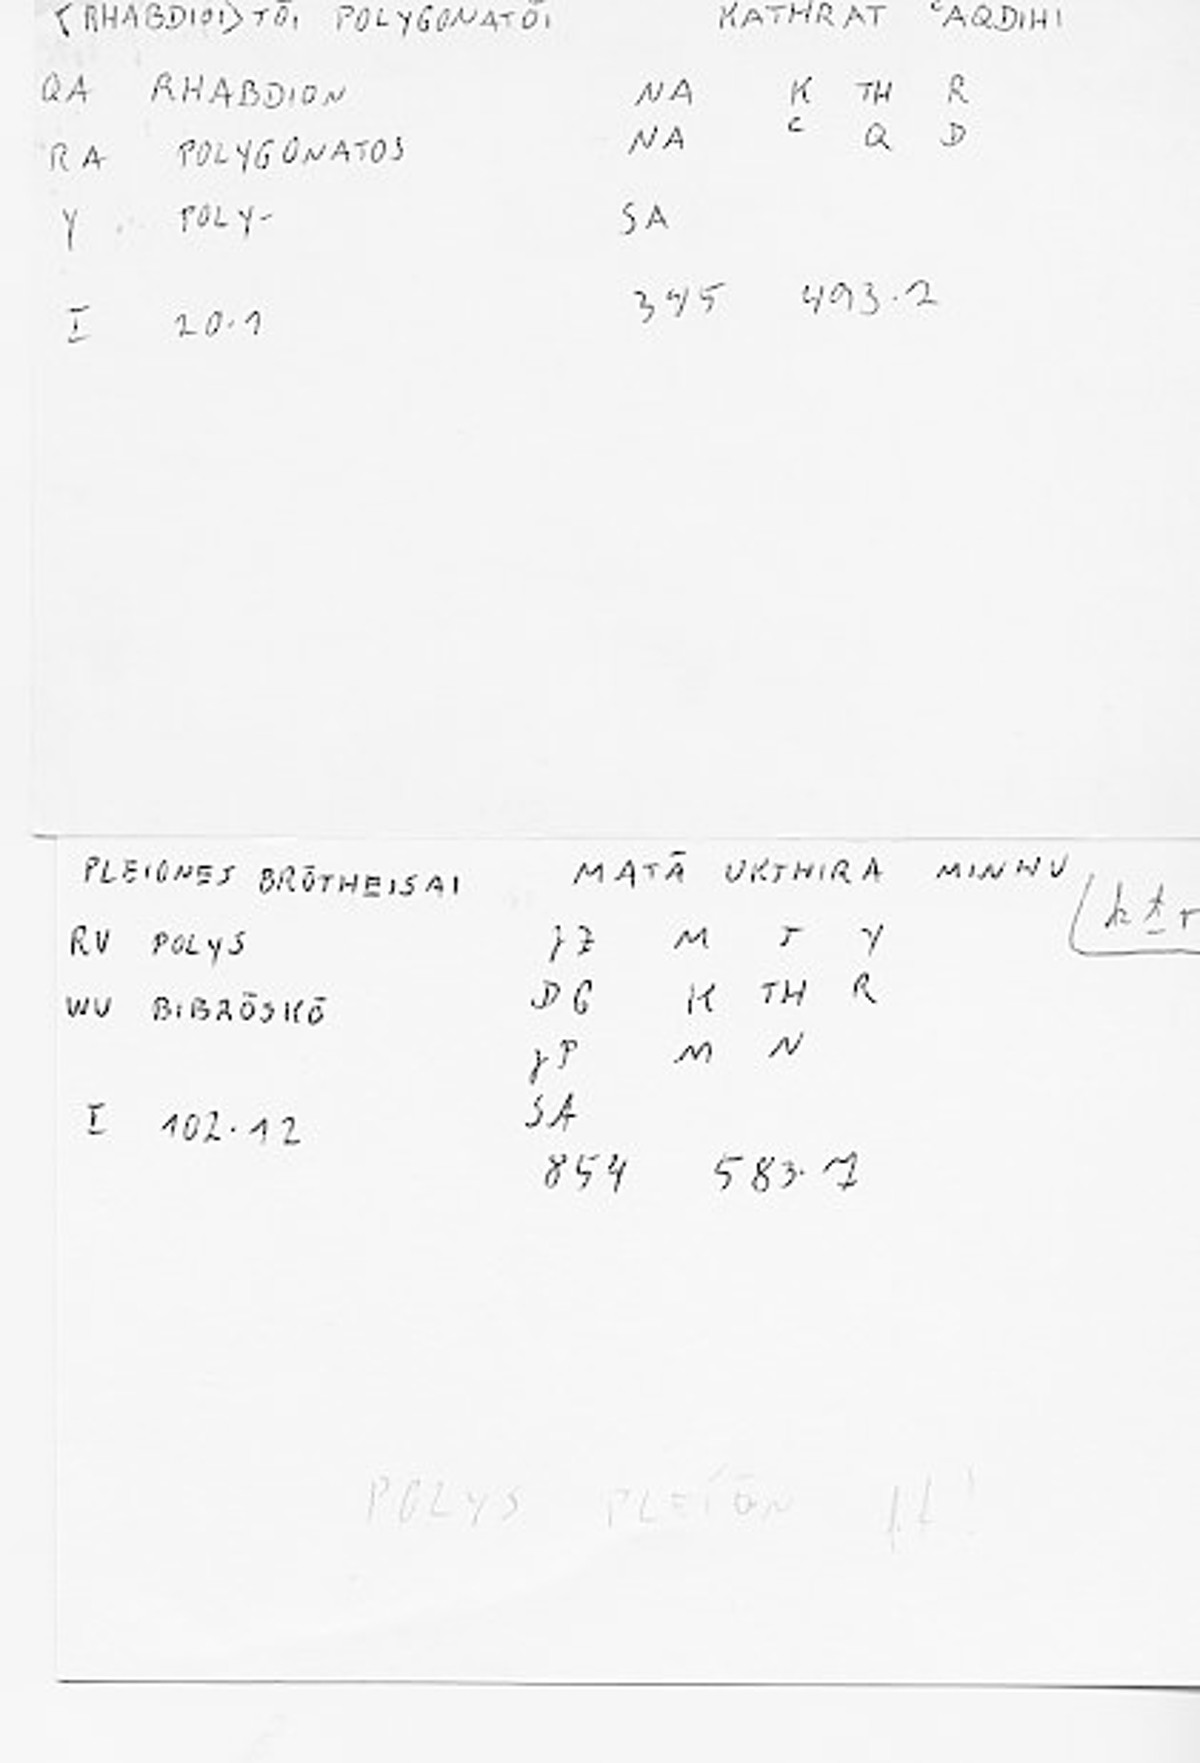 ⟨RHABDIOI⟩ TŌI POLYGONATŌI KATHRAT ʿAQDIHI
QA RHABDION NA K TH R
RA POLYGONATOS NA ʿ Q D
Y POLY- SA
I 20.1 345 493.2
PLEIONES BRŌTHEISAI MATĀ UKTHIRA MINHU
RU POLYS JZ M T Y
WU BIBRŌSKŌ DG K TH R
JP M N
I 102.12 SA
854 583.7
POLYS PLEÍŌN